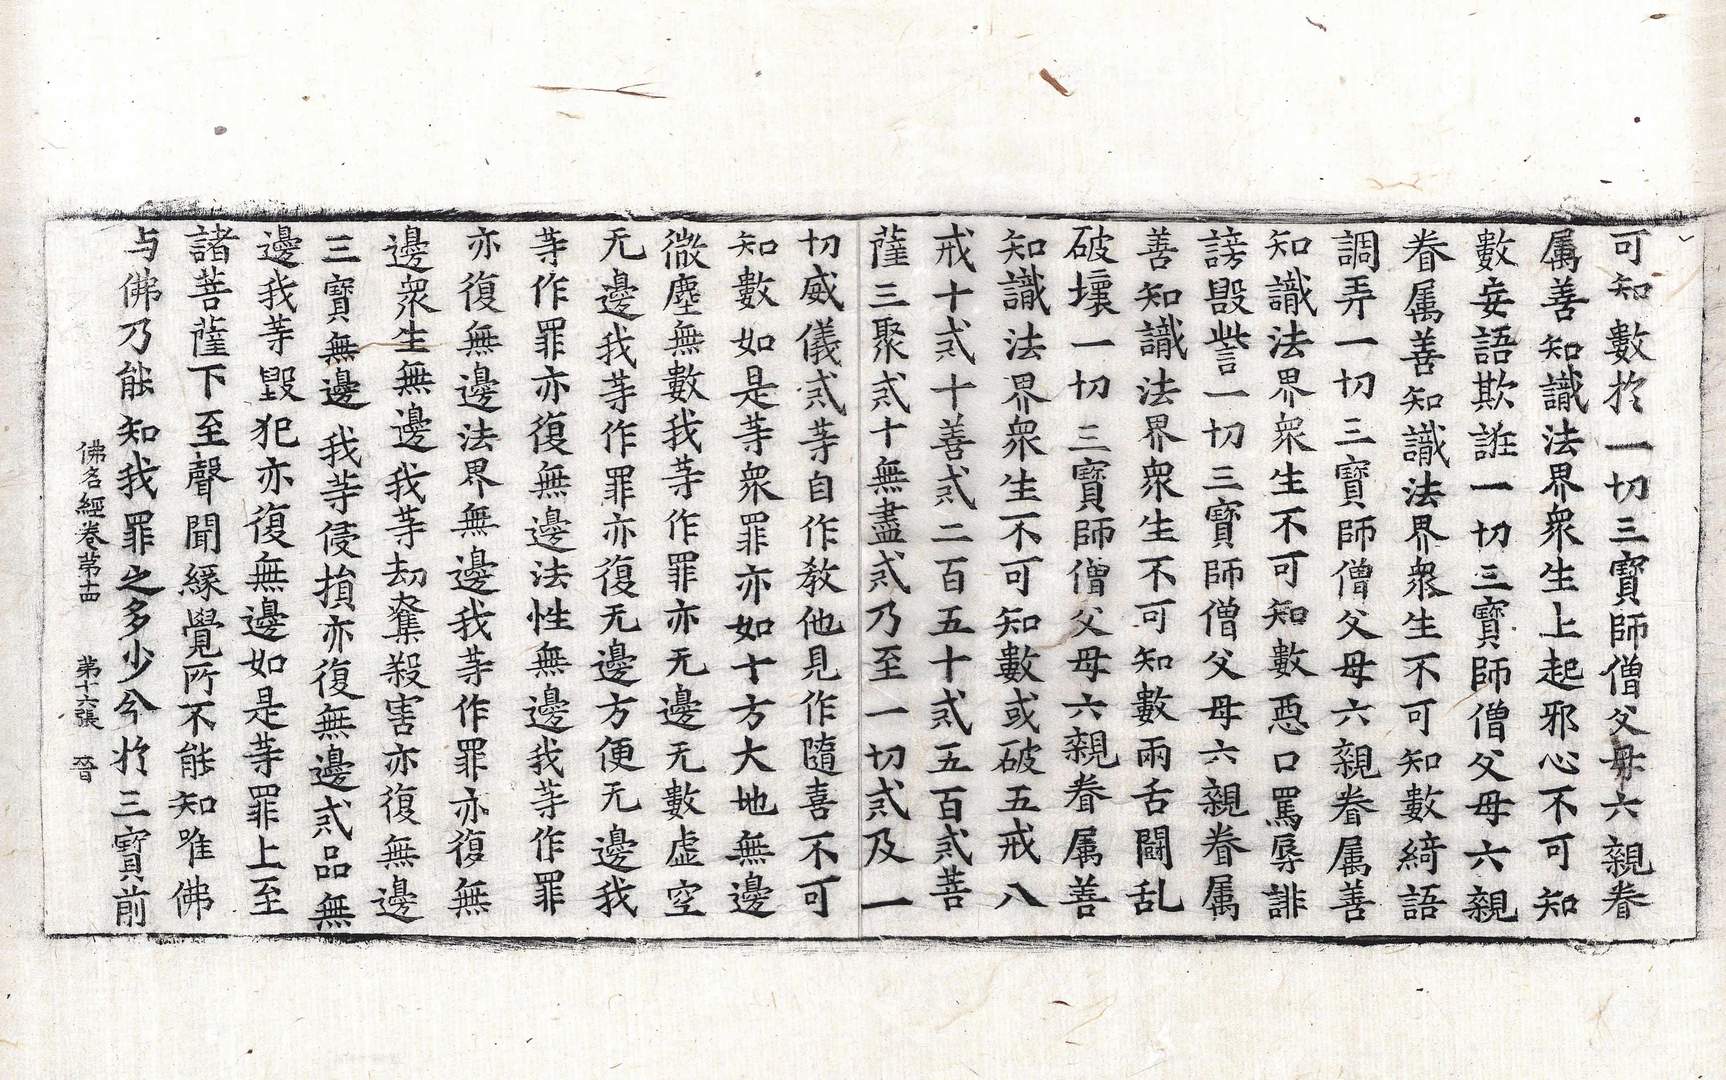 可知數扵一切三寳師僧父母六親眷
属善知識法界衆生上起邪心不可知
數妄語欺誑一切三寳師僧父母六親
眷属善知識法界衆生不可知數綺語
調弄一切三寳師僧父母六親眷属善
知識法界衆生不可知數惡口罵辱誹
謗毀訾一切三寳師僧父母六親眷属
善知識法界衆生不可知數兩舌鬪乱
破壞一切三寳師僧父母六親眷属善
知識法界衆生不可知數或破五戒八
戒十戒十善戒二百五十戒五百戒菩
薩三聚戒十無盡戒乃至一切戒及一
切威儀戒等自作教他見作隨喜不可
知數如是等衆罪亦如十方大地無邊
微塵無數我等作罪亦无邊无數虚空
无邊我等作罪亦復无邊方便无邊我
等作罪亦復無邊法性無邊我等作罪
亦復無邊法界無邊我等作罪亦復無
邊衆生無邊我等劫奪殺害亦復無邊
三寳無邊我等侵損亦復無邊戒品無
邊我等毀犯亦復無邊如是等罪上至
諸菩薩下至聲聞緣覺所不能知唯佛
与佛乃能知我罪之多少今扵三寳前
佛名經卷第十四 第十六張 晉